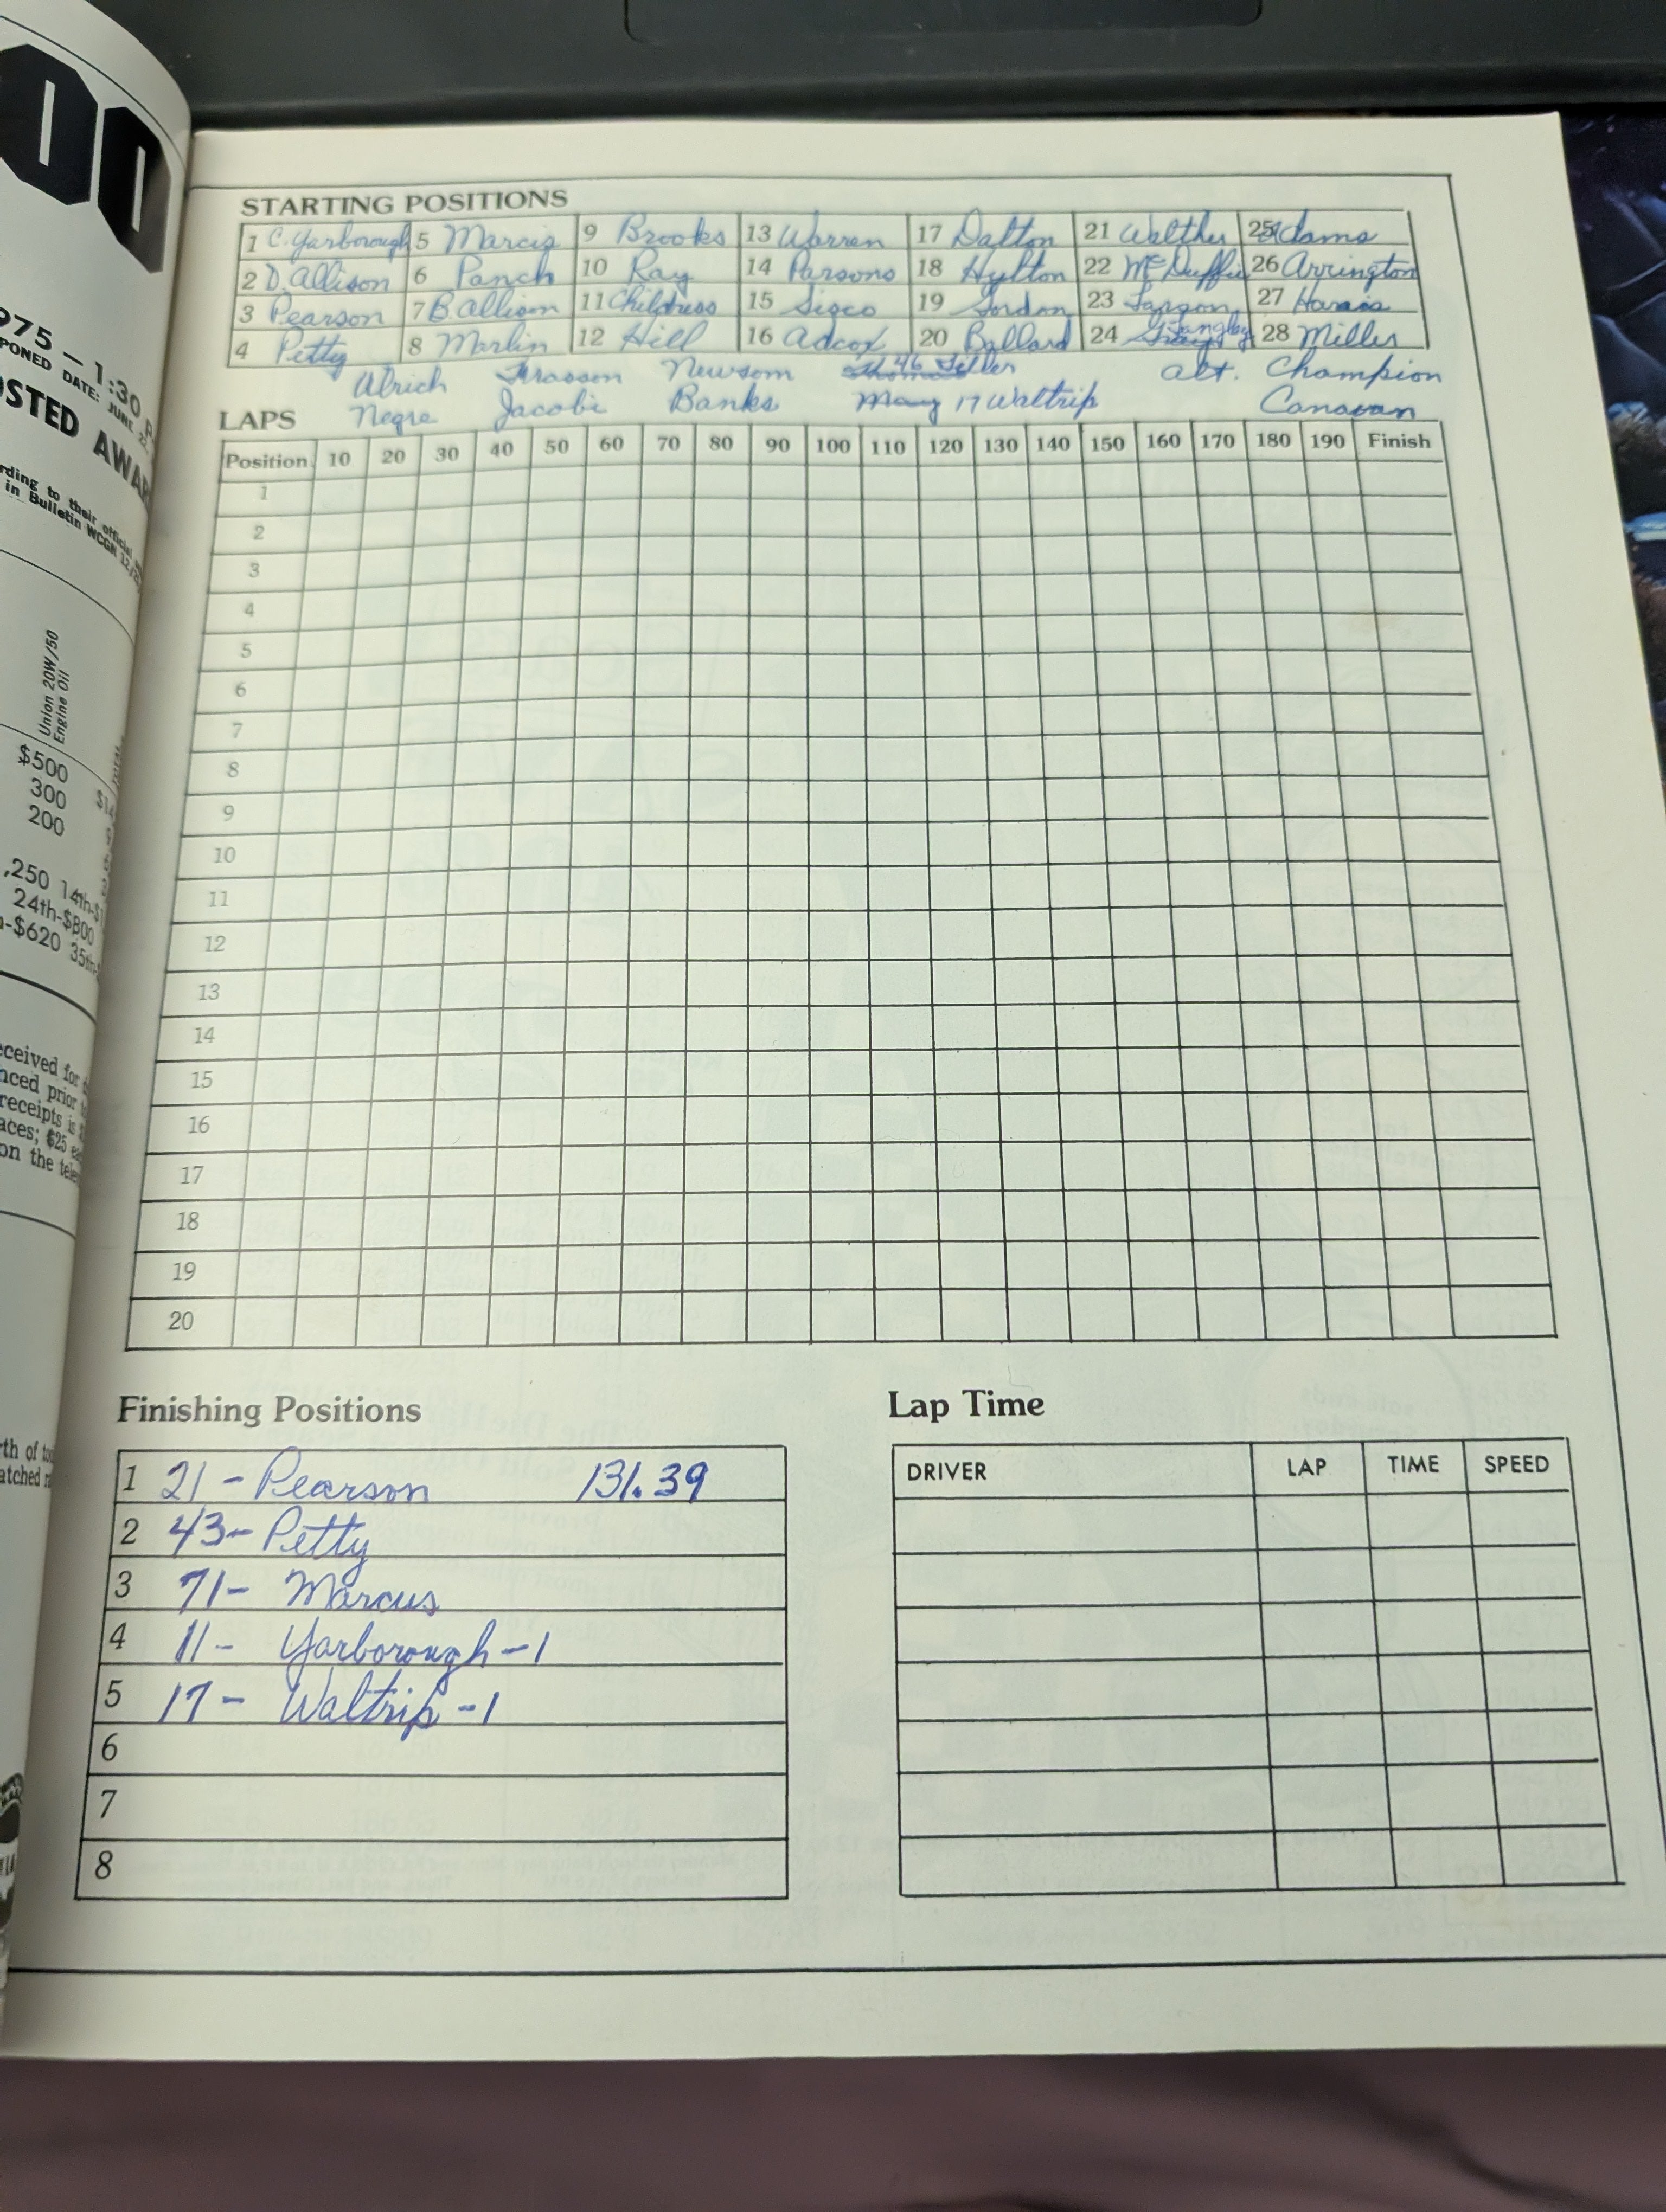 00
975 — 1:30 P
PONED DATE: JUNE
OSTED AWAR
rding to their official
in Bulletin WCGN 12/2
Union 20W/50
Engine Oil
$500
300
200
,250 14th-$1
24th-$800
-$620 35th-
eceived for
nced prior
receipts is
aces; $25 ea
on the tele
rth of
atched
STARTING POSITIONS
1 C. Yarborough 5 Marcis 9 Brooks 13 Warren 17 Dalton 21 Walther 25 Adams
2 D. Allison 6 Panch 10 Ray 14 Parsons 18 Hylton 22 McDuffie 26 Arrington
3 Pearson 7 B Allison 11 Childress 15 Sisco 19 Gordon 23 27
4 Petty 8 Marlin 12 Hill 16 Adcox 20 Ballard 24 Langley 28 Miller
Ulrich Frasson Newsom 46 alt. Champion
Negre Jacobi Banks 17 Waltrip Canavan
LAPS
Position 10 20 30 40 50 60 70 80 90 100 110 120 130 140 150 160 170 180 190 Finish
1
2
3
4
5
6
7
8
9
10
11
12
13
14
15
16
17
18
19
20
Finishing Positions
1 21 - Pearson 131.39
2 43 - Petty
3 71 - Marcus
4 11 - Yarborough - 1
5 17 - Waltrip - 1
6
7
8
Lap Time
DRIVER LAP TIME SPEED